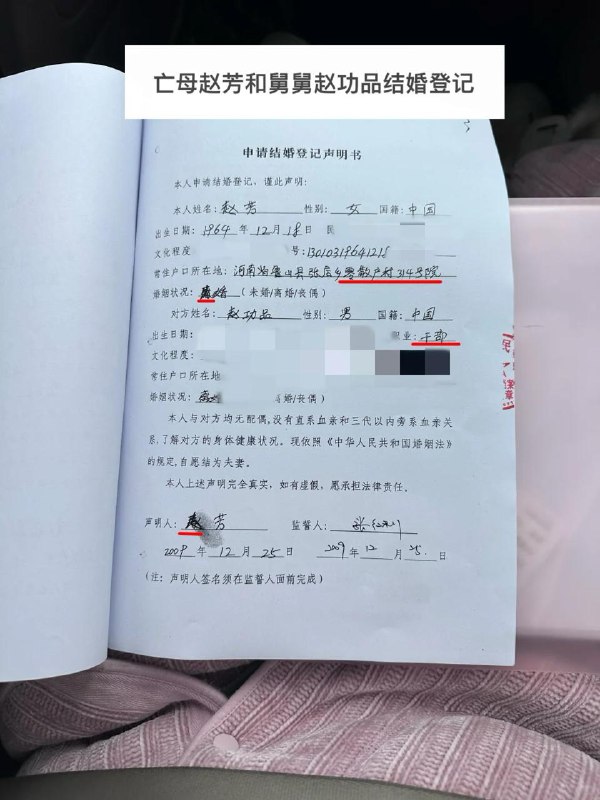 亡母赵芳和舅舅赵功品结婚登记
申请结婚登记声明书
本人申请结婚登记，谨此声明:
本人姓名: 赵芳 性别: 女 国籍: 中国
出生日期: 1964 年 12 月 18 日 民
文化程度 号: 13010319641218
常住户口所在地: 河南省 县张店乡 散户村314号院
婚姻状况: 离婚 (未婚/离婚/丧偶)
对方姓名: 赵功品 性别: 男 国籍: 中国
出生日期: 职业: 干部
文化程度:
常住户口所在地
婚姻状况: 结婚/丧偶)
本人与对方均无配偶,没有直系血亲和三代以内旁系血亲关
系,了解对方的身体健康状况。现依照《中华人民共和国婚姻法》
的规定,自愿结为夫妻。
本人上述声明完全真实，如有虚假，愿承担法律责任。
声明人: 赵芳 监督人: 张
2009 年 12 月 25 日 2009 年 12 月 25 日
(注: 声明人签名须在监督人面前完成)